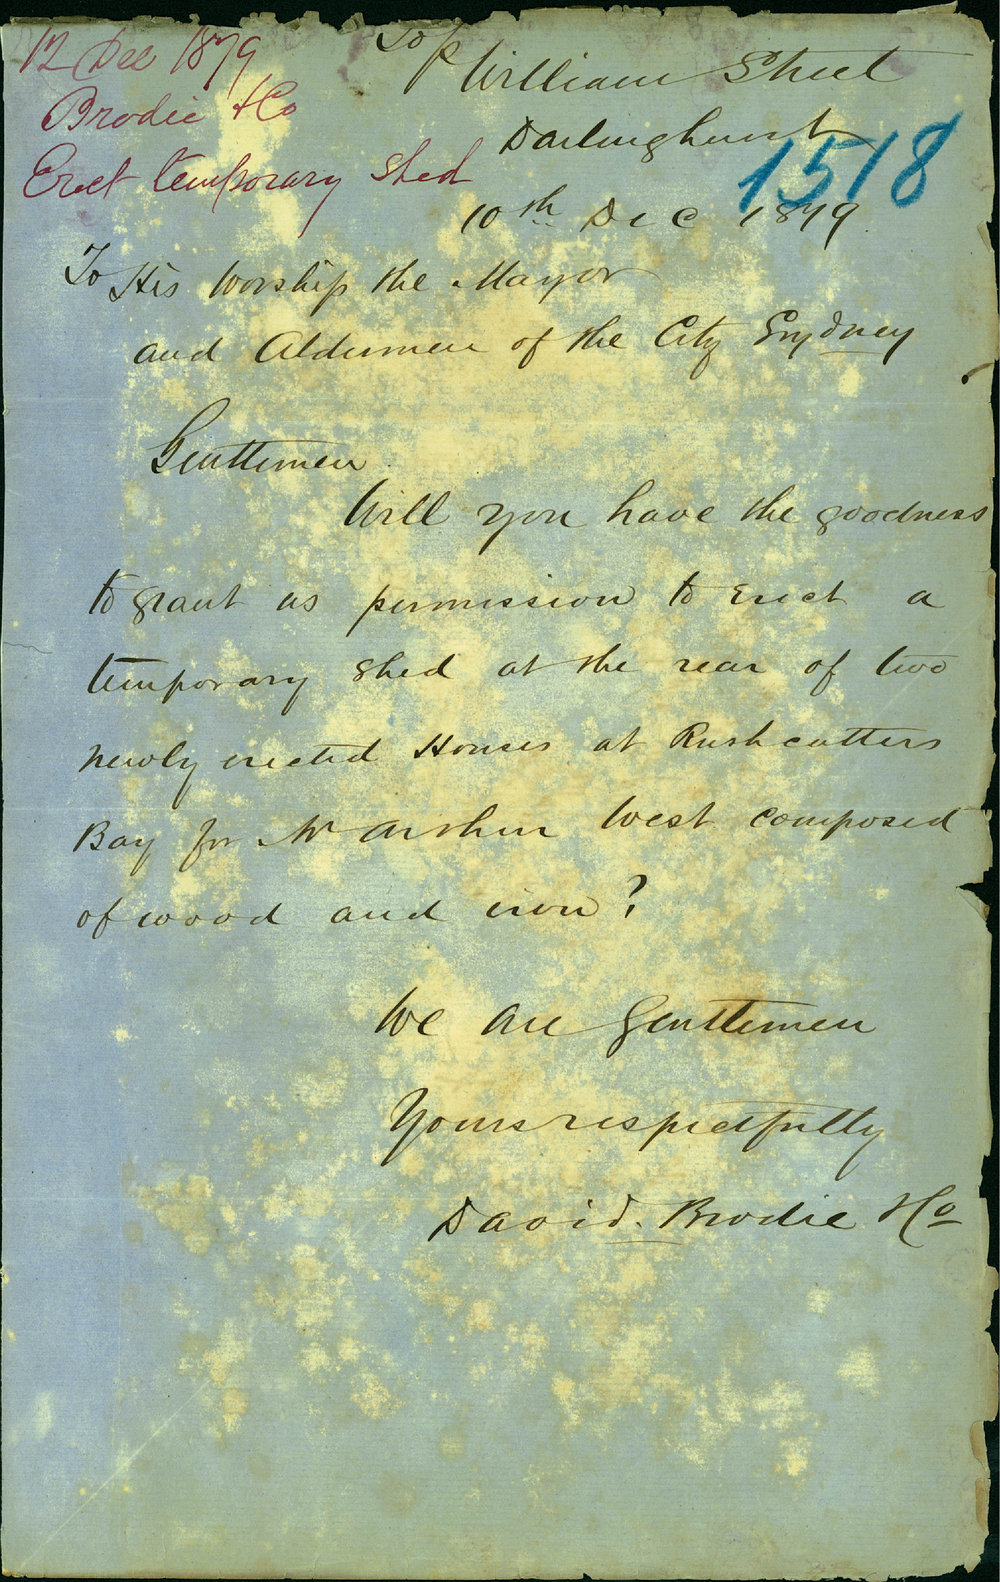 12 Dec 1879
Brodie & Co
Erect temporary shed
Top William Street
Darlinghurst
1518
10th Dec 1879
To His Worship the Mayor
and Aldermen of the City Sydney
Gentlemen
Will you have the goodness
to grant us permission to Erect a
temporary shed at the rear of two
newly erected Houses at Rushcutters
Bay for Mr Arthur West composed
of wood and iron?
We are Gentlemen
Yours respectfully
David. Brodie & Co